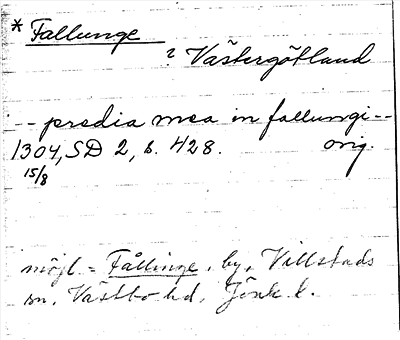 * Fallunge
? Västergötland
-- predia mea in fallungi --
1304, SD 2, s. 428. orig.
15/8
möjl. = Fållinge, by, Villstads
sn, Västbo hd, Jönk. l.